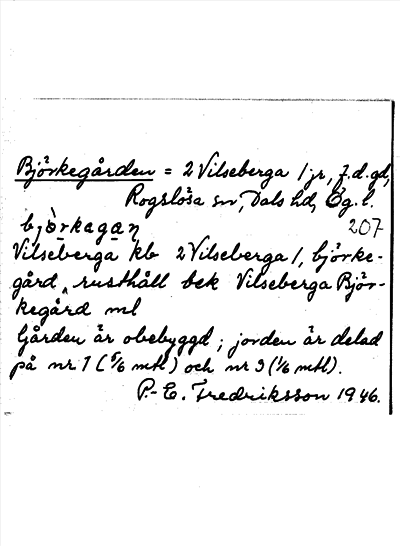 Björkegården = 2 Vilseberga 1 jr, f.d.gd,
Rogslösa sn, Dals hd, Ög. l.
bjö̀rkagaṇ 207
Vilseberga kb 2 Vilseberga 1, björke-
gård, rusthåll bek Vilseberga Björ-
kegård ml
Gården är obebyggd; jorden är delad
på nr 1 (5/6 mtl) och nr 3 (1/6 mtl).
P.-E. Fredriksson 1946.